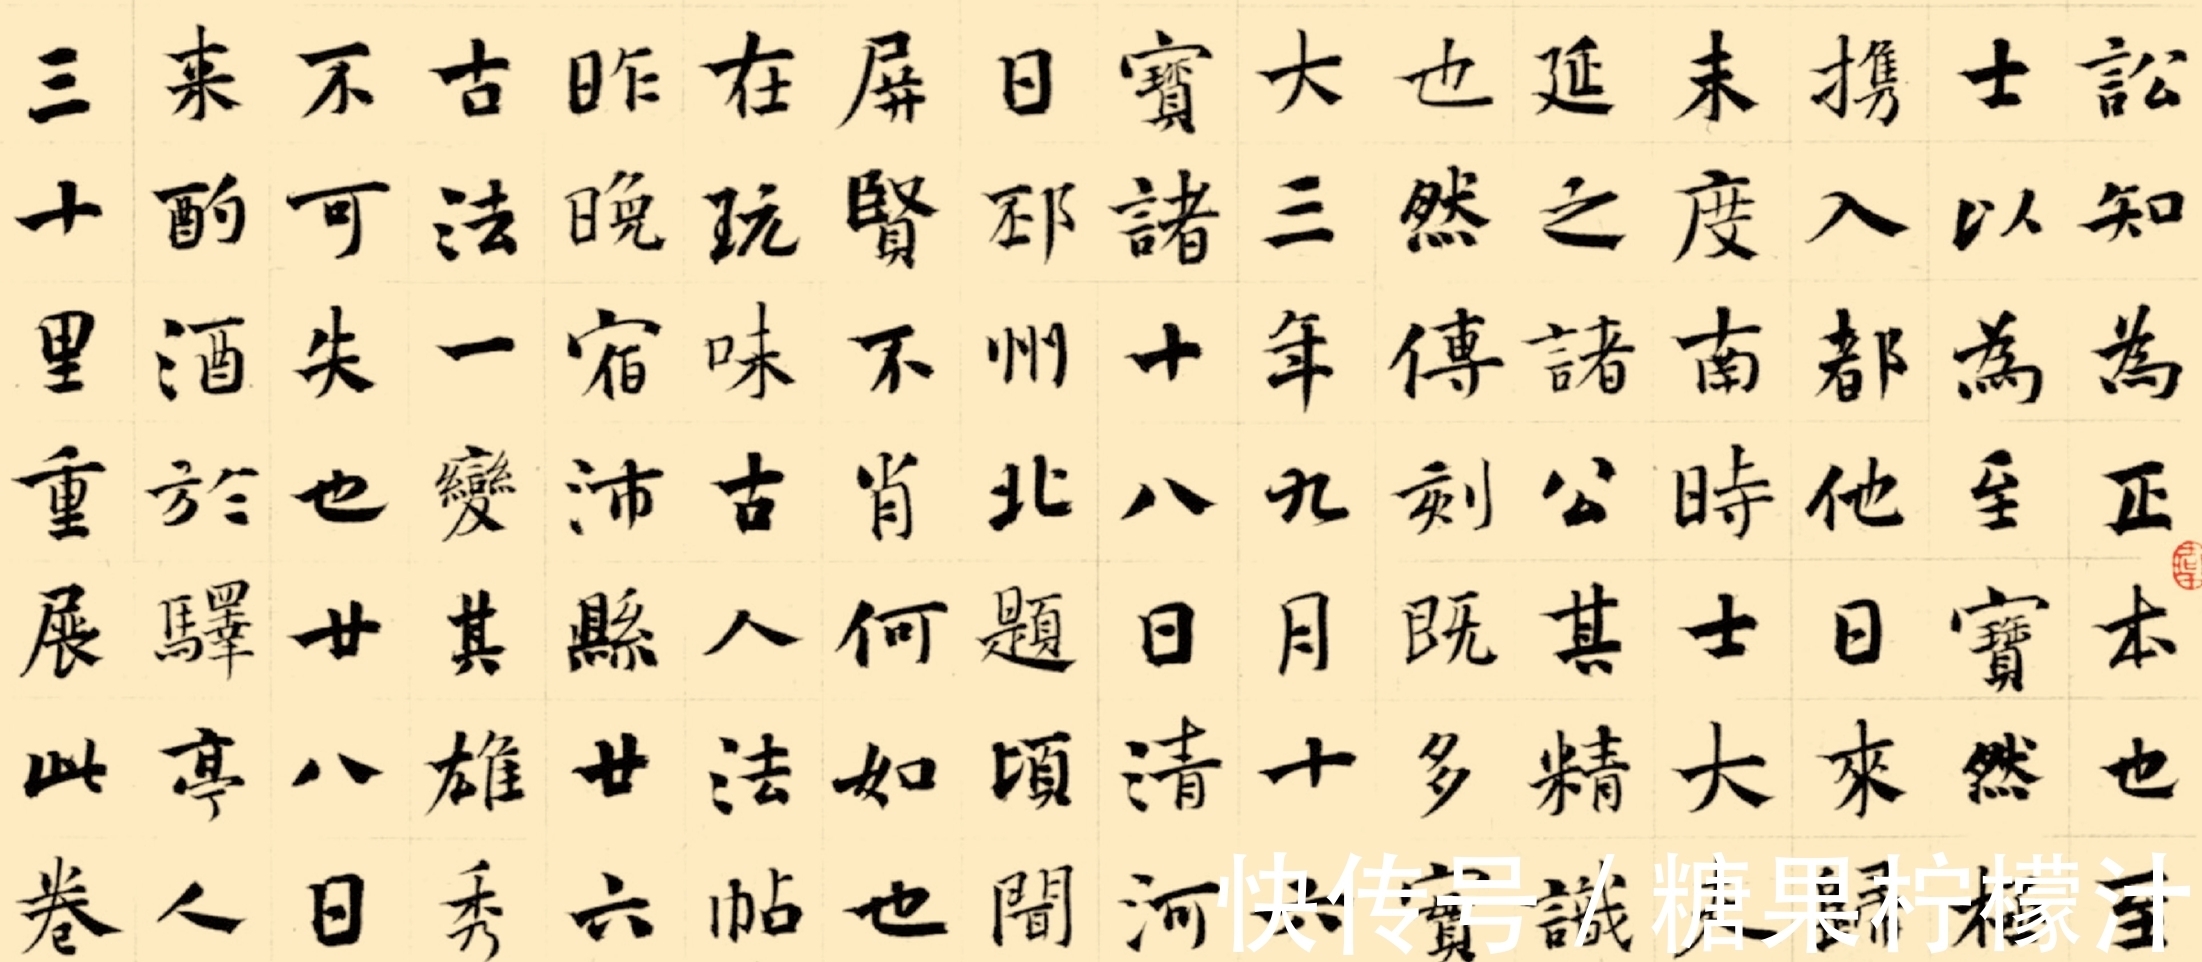 訟知為正本也至
士以為至寶然
携入都他日來歸
末度南時士大夫
延之諸公其精識
也然傳刻既多寶
大三年九月十六
寶諸十八日清河
日邳州北題頃聞
屏賢不肖何如也
在玩味古人法帖
昨晚宿沛縣廿六
古法一變其雄秀
不可失也廿八日
来酌酒於驛亭人
三十里重展此卷
快传号 / 糖果柠檬汁